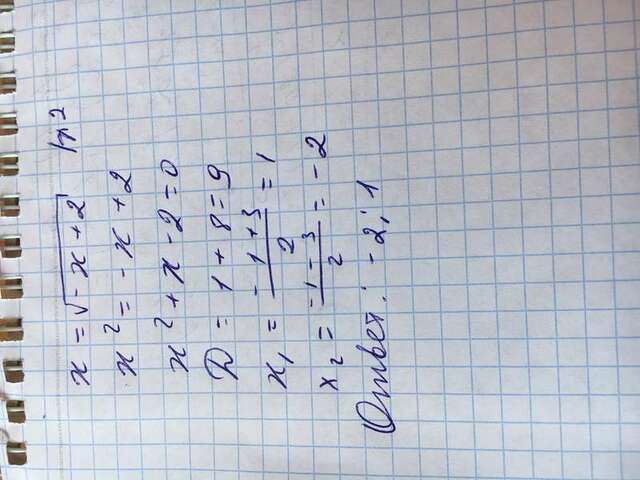 x = √(-x + 2) |↑2
x² = -x + 2
x² + x - 2 = 0
D = 1 + 8 = 9
x₁ = (-1 + 3)/2 = 1
x₂ = (-1 - 3)/2 = -2
Ответ: -2; 1